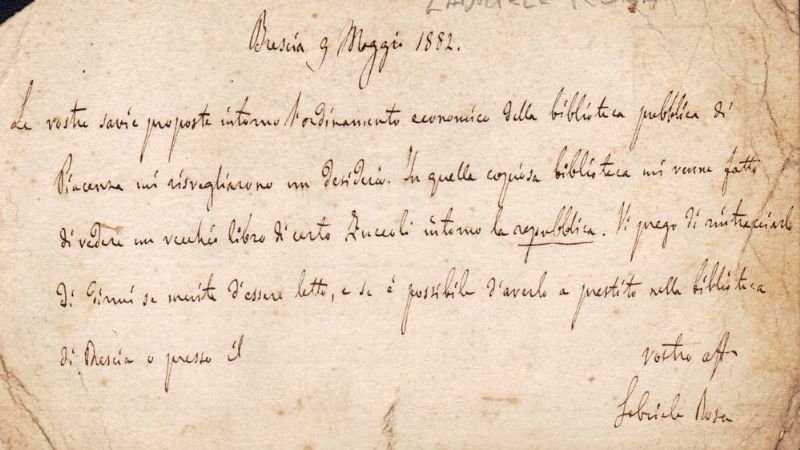 Brescia 9 Maggio 1882.
Le vostre savie proposte intorno l'ordinamento economico della biblioteca pubblica di
Piacenza mi risvegliarono un desiderio. In quella copiosa biblioteca mi venne fatto
di vedere un vecchio libro di certo Zuccoli intorno la repubblica. Vi prego di rintracciarlo
di dirmi se merita d'essere letto, e se è possibile d'averlo a prestito nella biblioteca
di Brescia o presso il
vostro aff
Gabriele Rosa